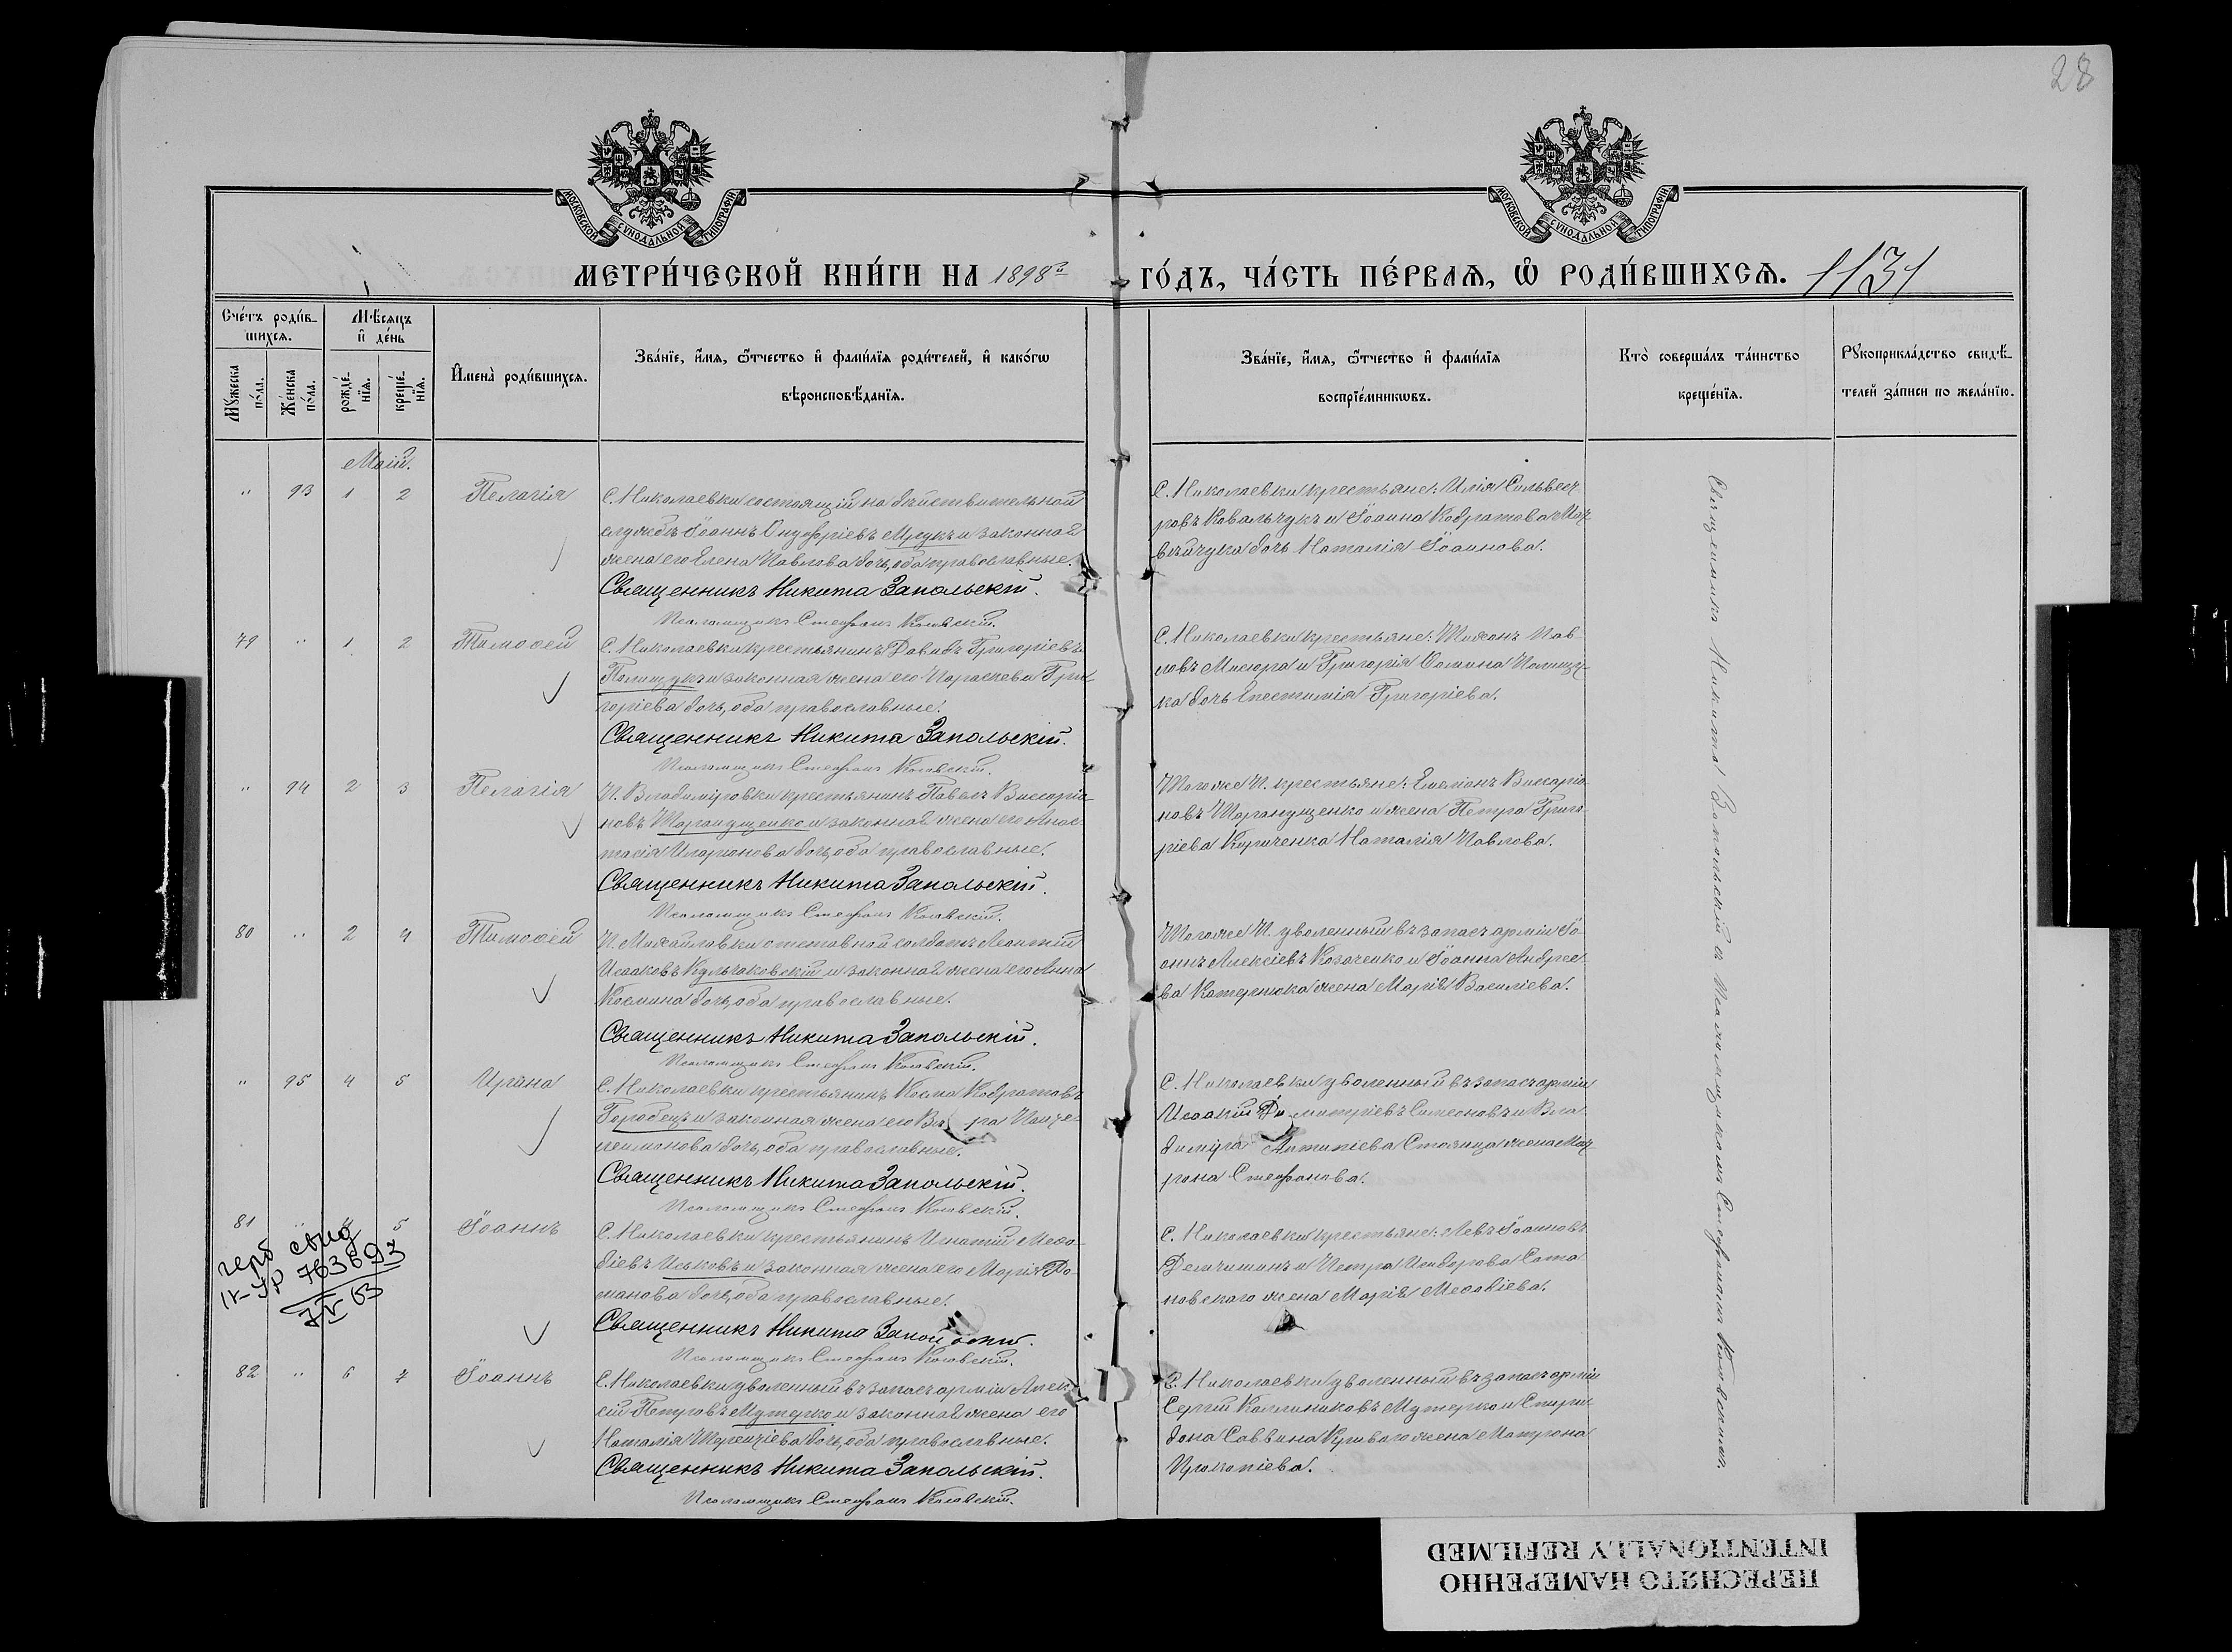 28
МОСКОВСКОЙ СѴНОДАЛЬНОЙ ТИПОГРАФІИ
МОСКОВСКОЙ СѴНОДАЛЬНОЙ ТИПОГРАФІИ
МЕТРИ́ЧЕСКОЙ КНИ́ГИ НА 1898й ГО́ДЪ, ЧА́СТЬ ПЕ́РВАѦ, Ѽ РОДИ́ВШИХСѦ. 1131
Сче́тъ роди́в-
шихсѧ.
Мѣ́сяцъ
и҆ де́нь
Мꙋ́жеска
по́ла.
Же́нска
по́ла.
рожде́-
нїѧ.
креще́-
нїѧ.
И҆мена̀ роди́вшихсѧ.
Зва́нїе, и҆́мѧ, ѻ҆́тчество и҆ фами́лїѧ роди́телей, и҆ како́гѡ
вѣроисповѣ́данїѧ.
Зва́нїе, и҆́мѧ, ѻ҆́тчество и҆ фами́лїѧ
воспрїе́мникѡвъ.
Кто̀ соверша́лъ та́инство
креще́нїѧ.
Рꙋкоприкла́дство свидѣ́-
телей за́писи по жела́нїю.
Маій.
" 93 1 2 Пелагія
С. Николаевки состоящій на дѣйствительной
службѣ Іоаннъ Онуфріевъ и законная
жена его Елена Павлова дочь, оба православные.
Священникъ Никита Запольскій.
Псаломщикъ Стефанъ Косовскій.
С. Николаевки крестьяне: Илія Сильвест-
ровъ Ковальчукъ и Іоанна Кодратова Мат-
вѣйчука дочь Наталія Іоаннова.
79 " 1 2 Тимоѳей
С. Николаевки крестьянинъ Давидъ Григоріевъ
Полищукъ и законная жена его Параскева Гри-
горіева дочь, оба православные.
Священникъ Никита Запольскій.
Псаломщикъ Стефанъ Косовскій.
С. Николаевки крестьяне: Тихонъ Пав-
ловъ Мисюра и Григорія Ѳомина Полищу-
ка дочь Епестимія Григоріева.
" 94 2 3 Пелагія
П. Владиміровки крестьянинъ Павелъ Виссаріо-
новъ Таранущенко и законная жена его Анас-
тасія Иларіонова дочь, оба православные.
Священникъ Никита Запольскій.
Псаломщикъ Стефанъ Косовскій.
Того же П. крестьяне: Емеліанъ Виссаріо-
новъ Таранущенко и жена Петра Григо-
ріева Кириченка Наталія Павлова.
80 " 2 4 Тимоѳей
П. Михайловки отставной солдатъ Леонтій
Исааковъ Кульчаковскій и законная жена его Анна
Космина дочь, оба православные.
Священникъ Никита Запольскій.
Псаломщикъ Стефанъ Косовскій.
Того же П. уволенный въ запасъ арміи Іо-
аннъ Алексіевъ Козаченко и Іоанна Андрее-
ва жена Марія Василіева.
" 95 4 5 Ирина
С. Николаевки крестьянинъ Косма Кодратовъ
Горобецъ и законная жена его Вѣ ра Панте-
леимонова дочь, оба православные.
Священникъ Никита Запольскій.
Псаломщикъ Стефанъ Косовскій.
С. Николаевки уволенный въ запасъ арміи
Исаакій Димитріевъ Симеоновъ и Вла-
диміра Антипіева жена Мат-
рона Стефанова.
81 " 5 Іоаннъ
герб свид
IV-УР 763693
С. Николаевки крестьянинъ Игнатій Меѳо-
діевъ Исаковъ и законная жена его Марія Ро-
манова дочь, оба православные.
Священникъ Никита
Псаломщикъ Стефанъ Косовскій.
С. Николаевки крестьяне: Левъ Іоанновъ
и Петра Исидорова Сата-
новскаго жена Марія Меѳодіева.
82 " 6 7 Іоаннъ
С. Николаевки уволенный въ запасъ арміи Алек-
сій Петровъ Мутерко и законная жена его
Наталія Терентіева дочь, оба православные.
Священникъ Никита Запольскій.
Псаломщикъ Стефанъ Косовскій.
С. Николаевки уволенный въ запасъ арміи
Сергій Каллиниковъ Мутерко и Спири-
дона Саввина Криваго жена Матрона
Прокопіева.
Священникъ Никита Запольскій съ Псаломщикомъ Стефаномъ Косовскимъ.
ПЕРЕСНЯТО НАМЕРЕННО
INTENTIONALLY REFILMED